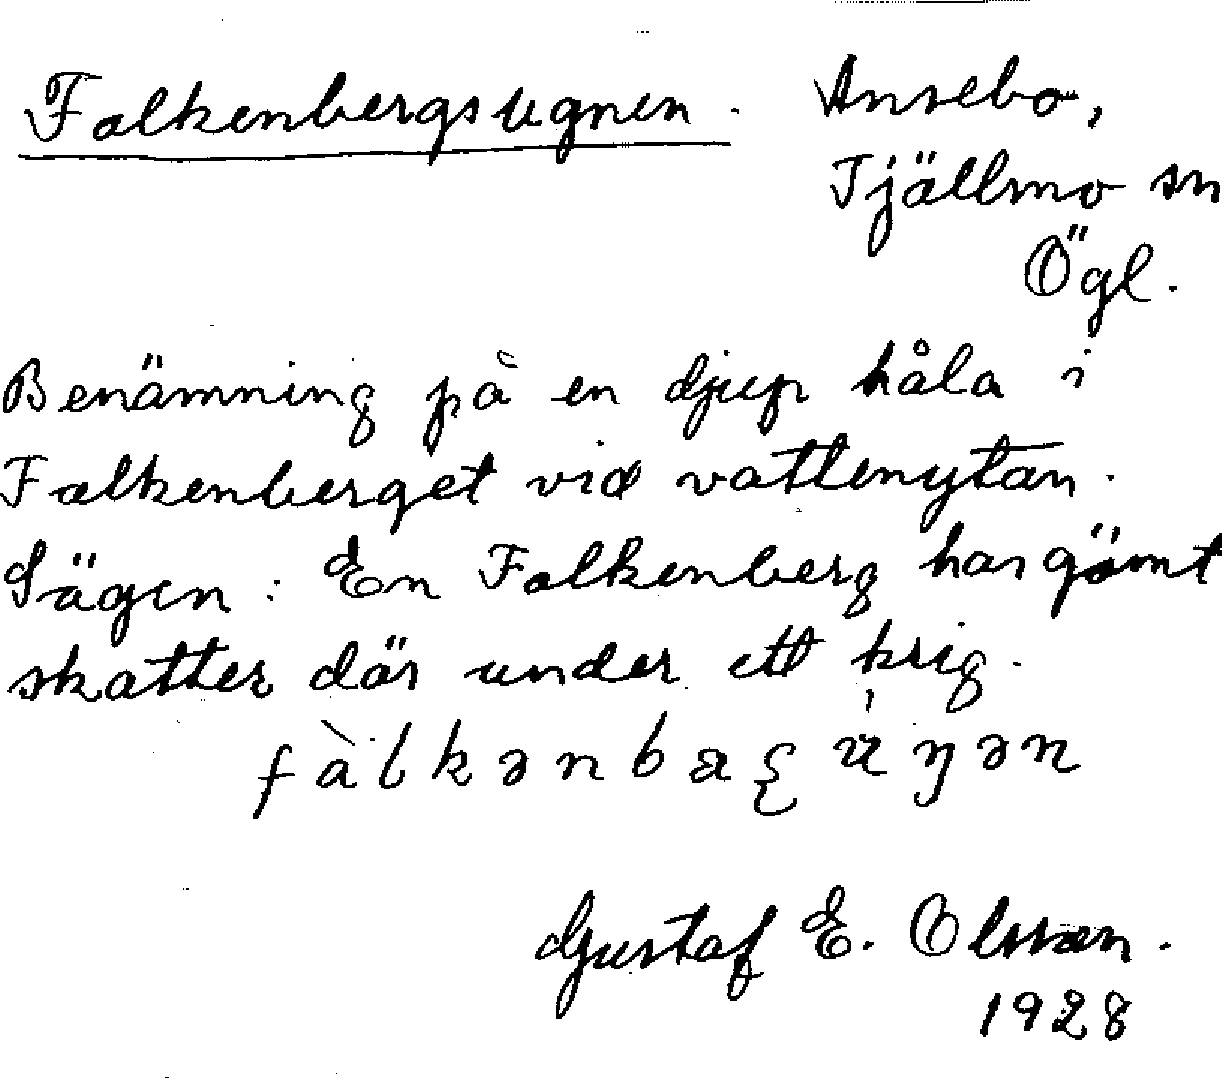 Falkenbergsugnen. Ansebo,
Tjällmo sn
Ögl.
Benämning på en djup håla i
Falkenberget vid vattenytan.
Sägen: En Falkenberg har gömt
skatter där under ett krig.
Gustaf E. Olsson.
1928